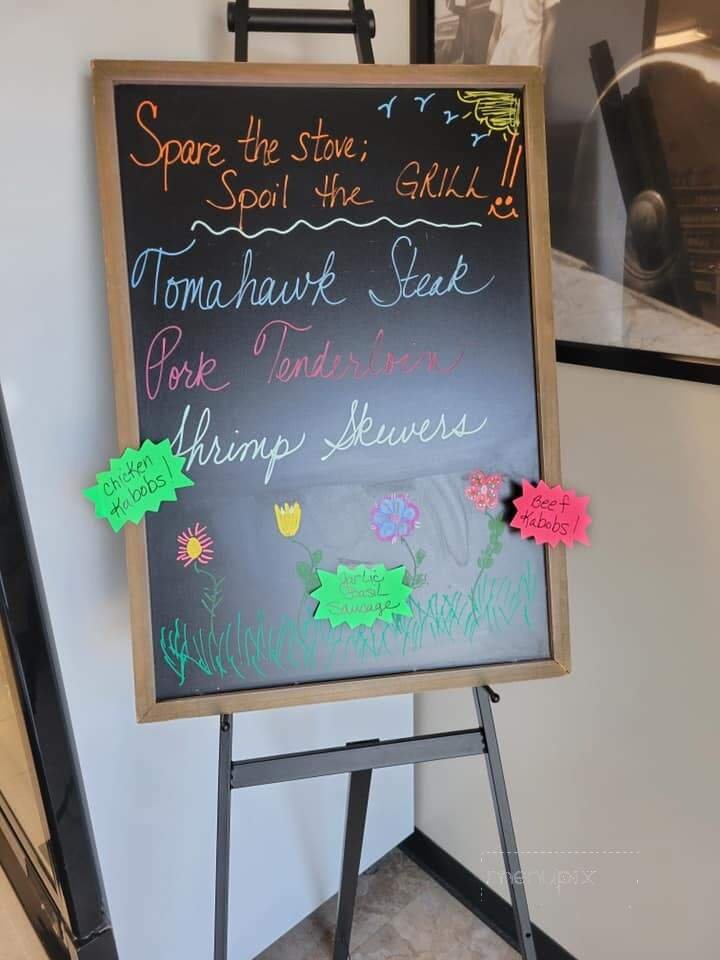 Spare the stove;
Spoil the GRILL!!
Tomahawk Steak
Pork Tenderloin
Shrimp Skewers
Chicken
Kabobs!
Beef
Kabobs!
Garlic
Basil
Sausage
menupix